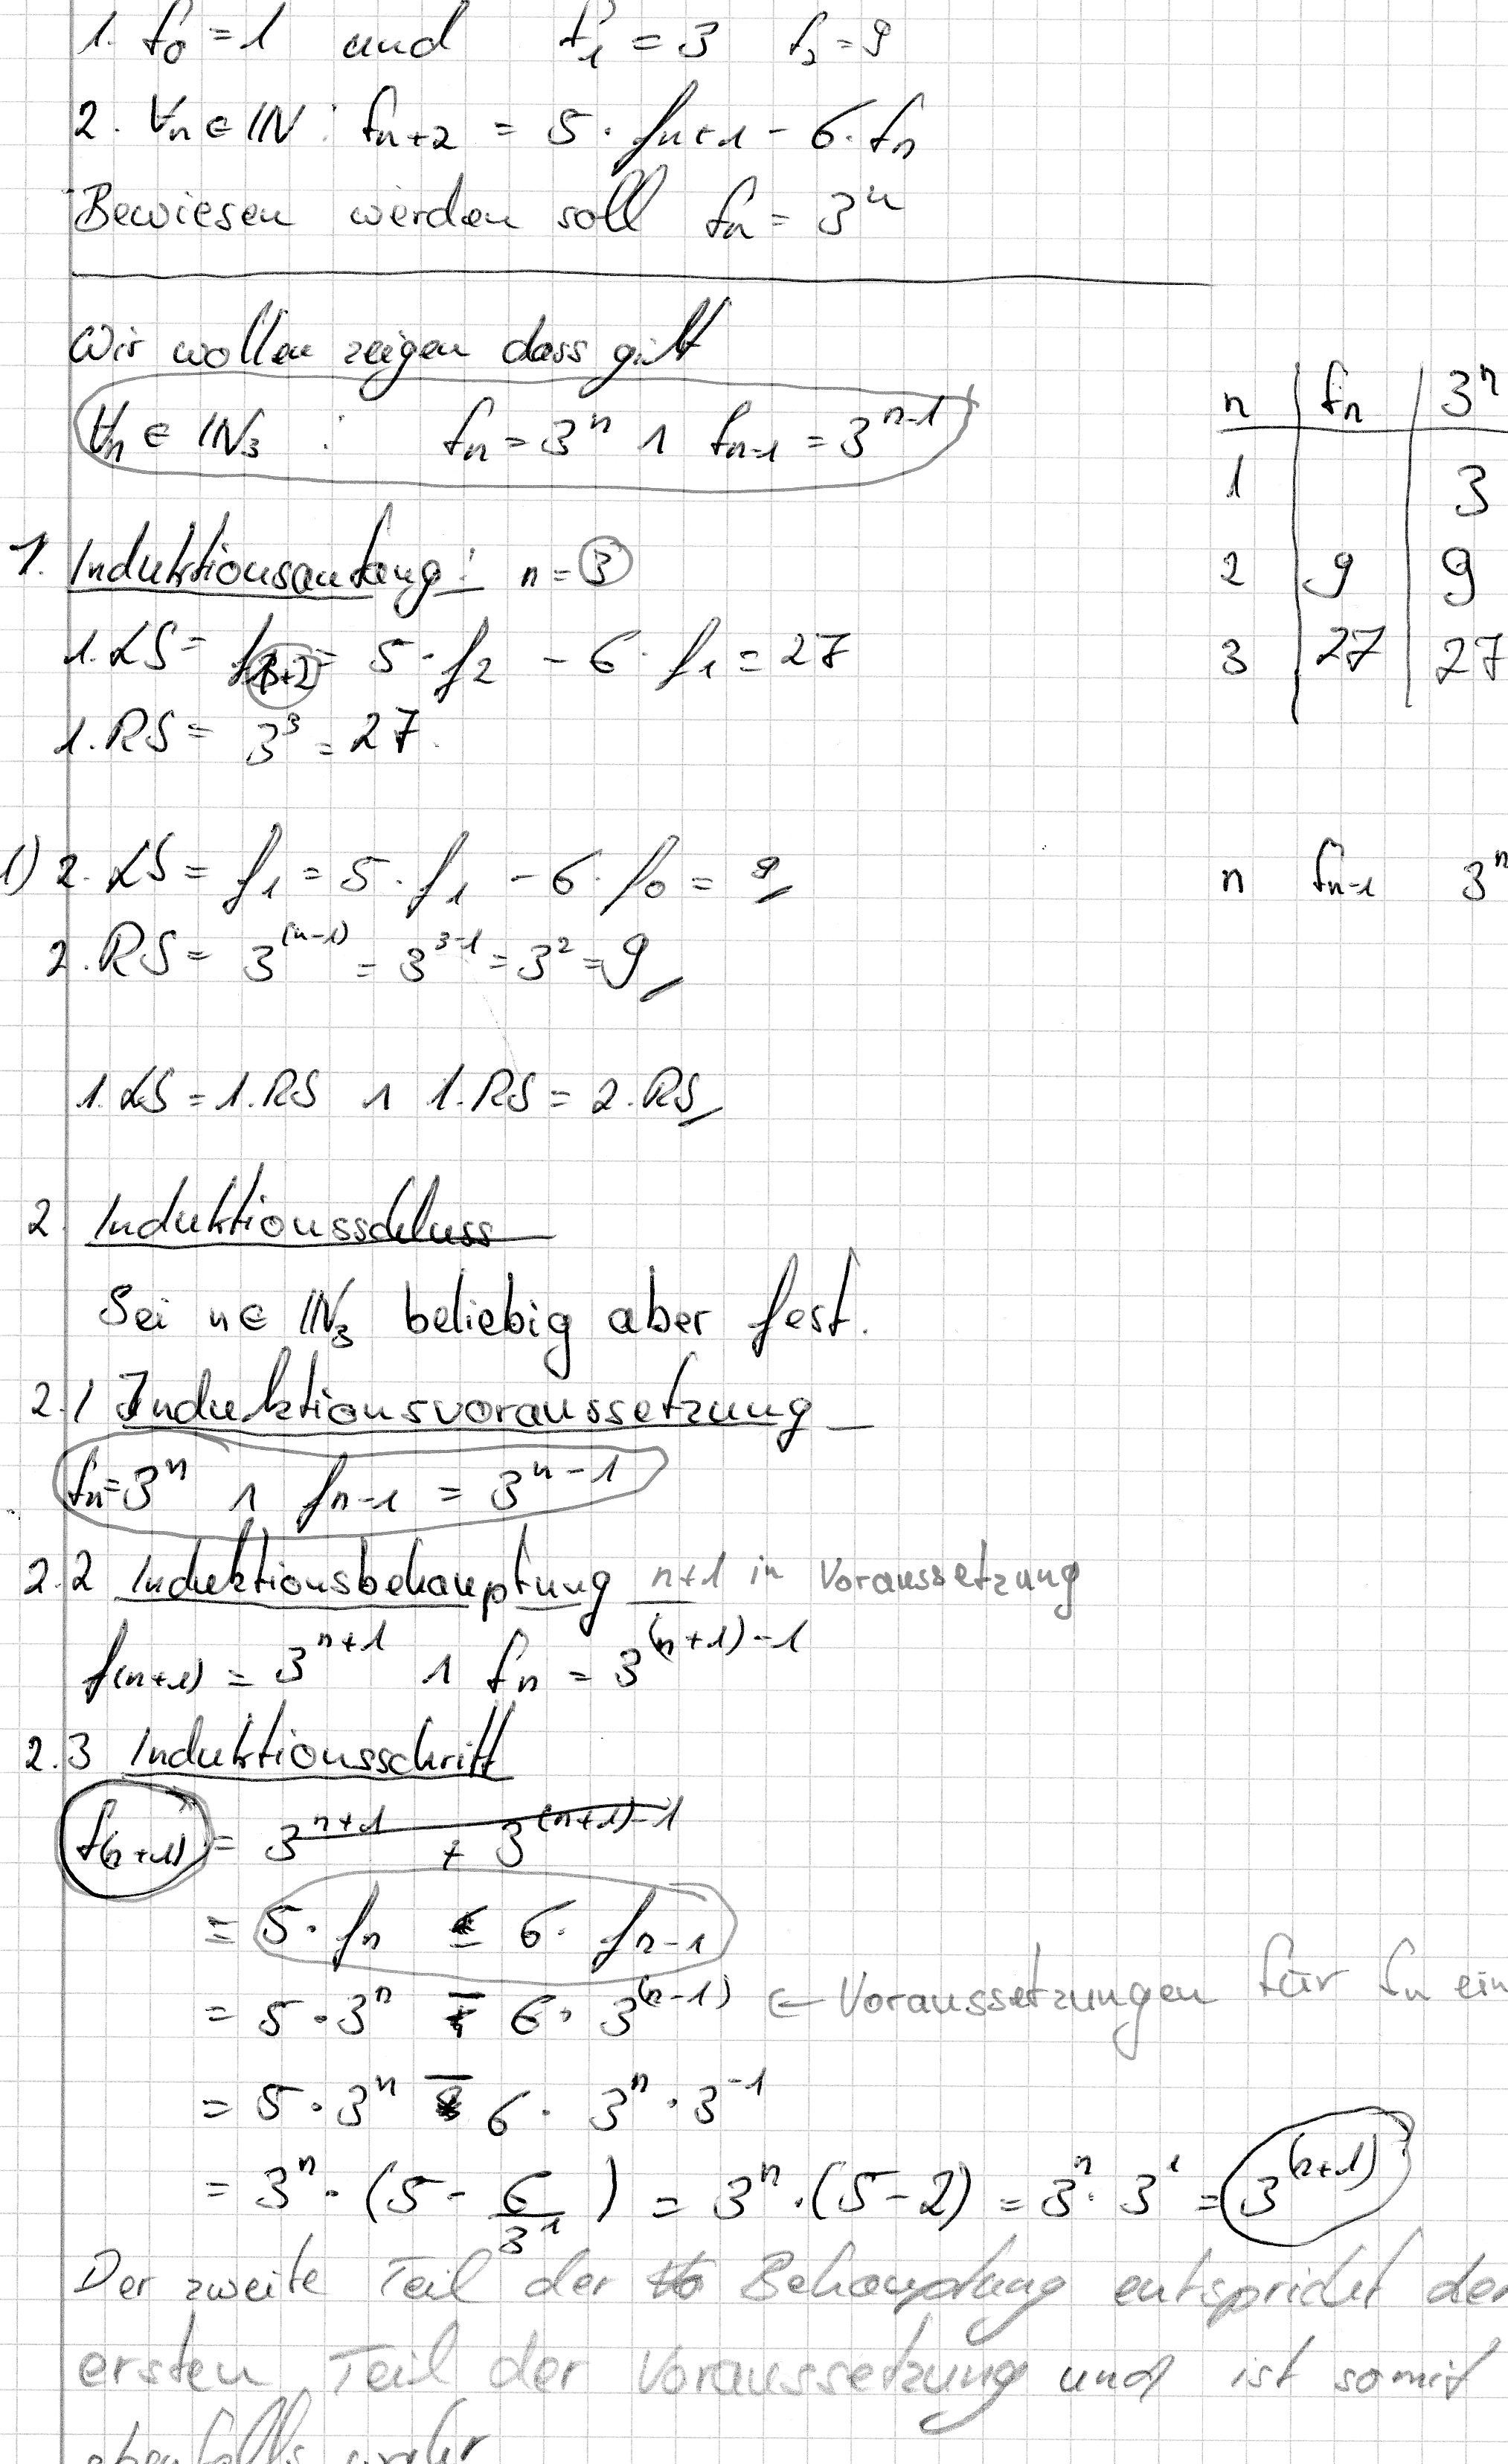 1. f₀ = 1 und f₁ = 3 f₂ = 9
2. ∀n ∈ IN : fn+2 = 5 · fn+1 - 6 · fn
Bewiesen werden soll fn = 3ⁿ
Wir wollen zeigen dass gilt
∀n ∈ IN₃ : fn = 3ⁿ ∧ fn-1 = 3ⁿ⁻¹
n fn 3ⁿ
1 3
2 9 9
3 27 27
1. Induktionsanfang: n = 3
1. LS = = 5 · f₂ - 6 · f₁ = 27
1. RS = 3³ = 27.
1) 2. LS = f₁ = 5 · f₁ - 6 · f₀ = 9
n fn-1 3ⁿ
2. RS = 3⁽ⁿ⁻¹⁾ = 3³⁻¹ = 3² = 9
1. LS = 1. RS ∧ 1. RS = 2. RS
2. Induktionsschluss
Sei n ∈ IN₃ beliebig aber fest.
2.1 Induktionsvoraussetzung
fn = 3ⁿ ∧ fn-1 = 3ⁿ⁻¹
2.2 Induktionsbehauptung n+1 in Voraussetzung
f(n+1) = 3ⁿ⁺¹ ∧ fn = 3⁽ⁿ⁺¹⁾⁻¹
2.3 Induktionsschritt
f(n+1) = 3ⁿ⁺¹ + 3⁽ⁿ⁺¹⁾⁻¹
= 5 · fn - 6 · fn-1
= 5 · 3ⁿ - 6 · 3⁽ⁿ⁻¹⁾ ← Voraussetzungen für fn ein
= 5 · 3ⁿ - 6 · 3ⁿ · 3⁻¹
= 3ⁿ · (5 - 6/3¹) = 3ⁿ · (5 - 2) = 3ⁿ · 3¹ = 3⁽ⁿ⁺¹⁾
Der zweite Teil der Behauptung entspricht der
ersten Teil der Voraussetzung und ist somit
ebenfalls wahr